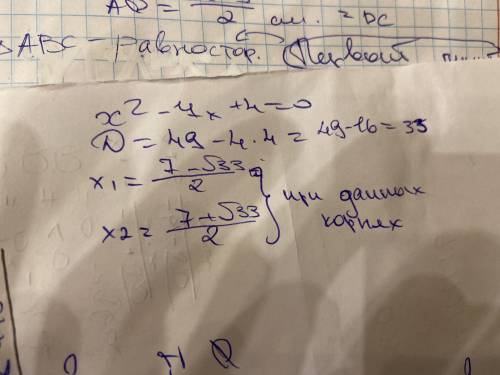 AD = 2 см. = DC
ABC – равностор. Первый
x² - 4x + 4 = 0
D = 49 - 4·4 = 49-16 = 33
x1 = 7-√33/2
x2 = 7+√33/2
при данных
корнях